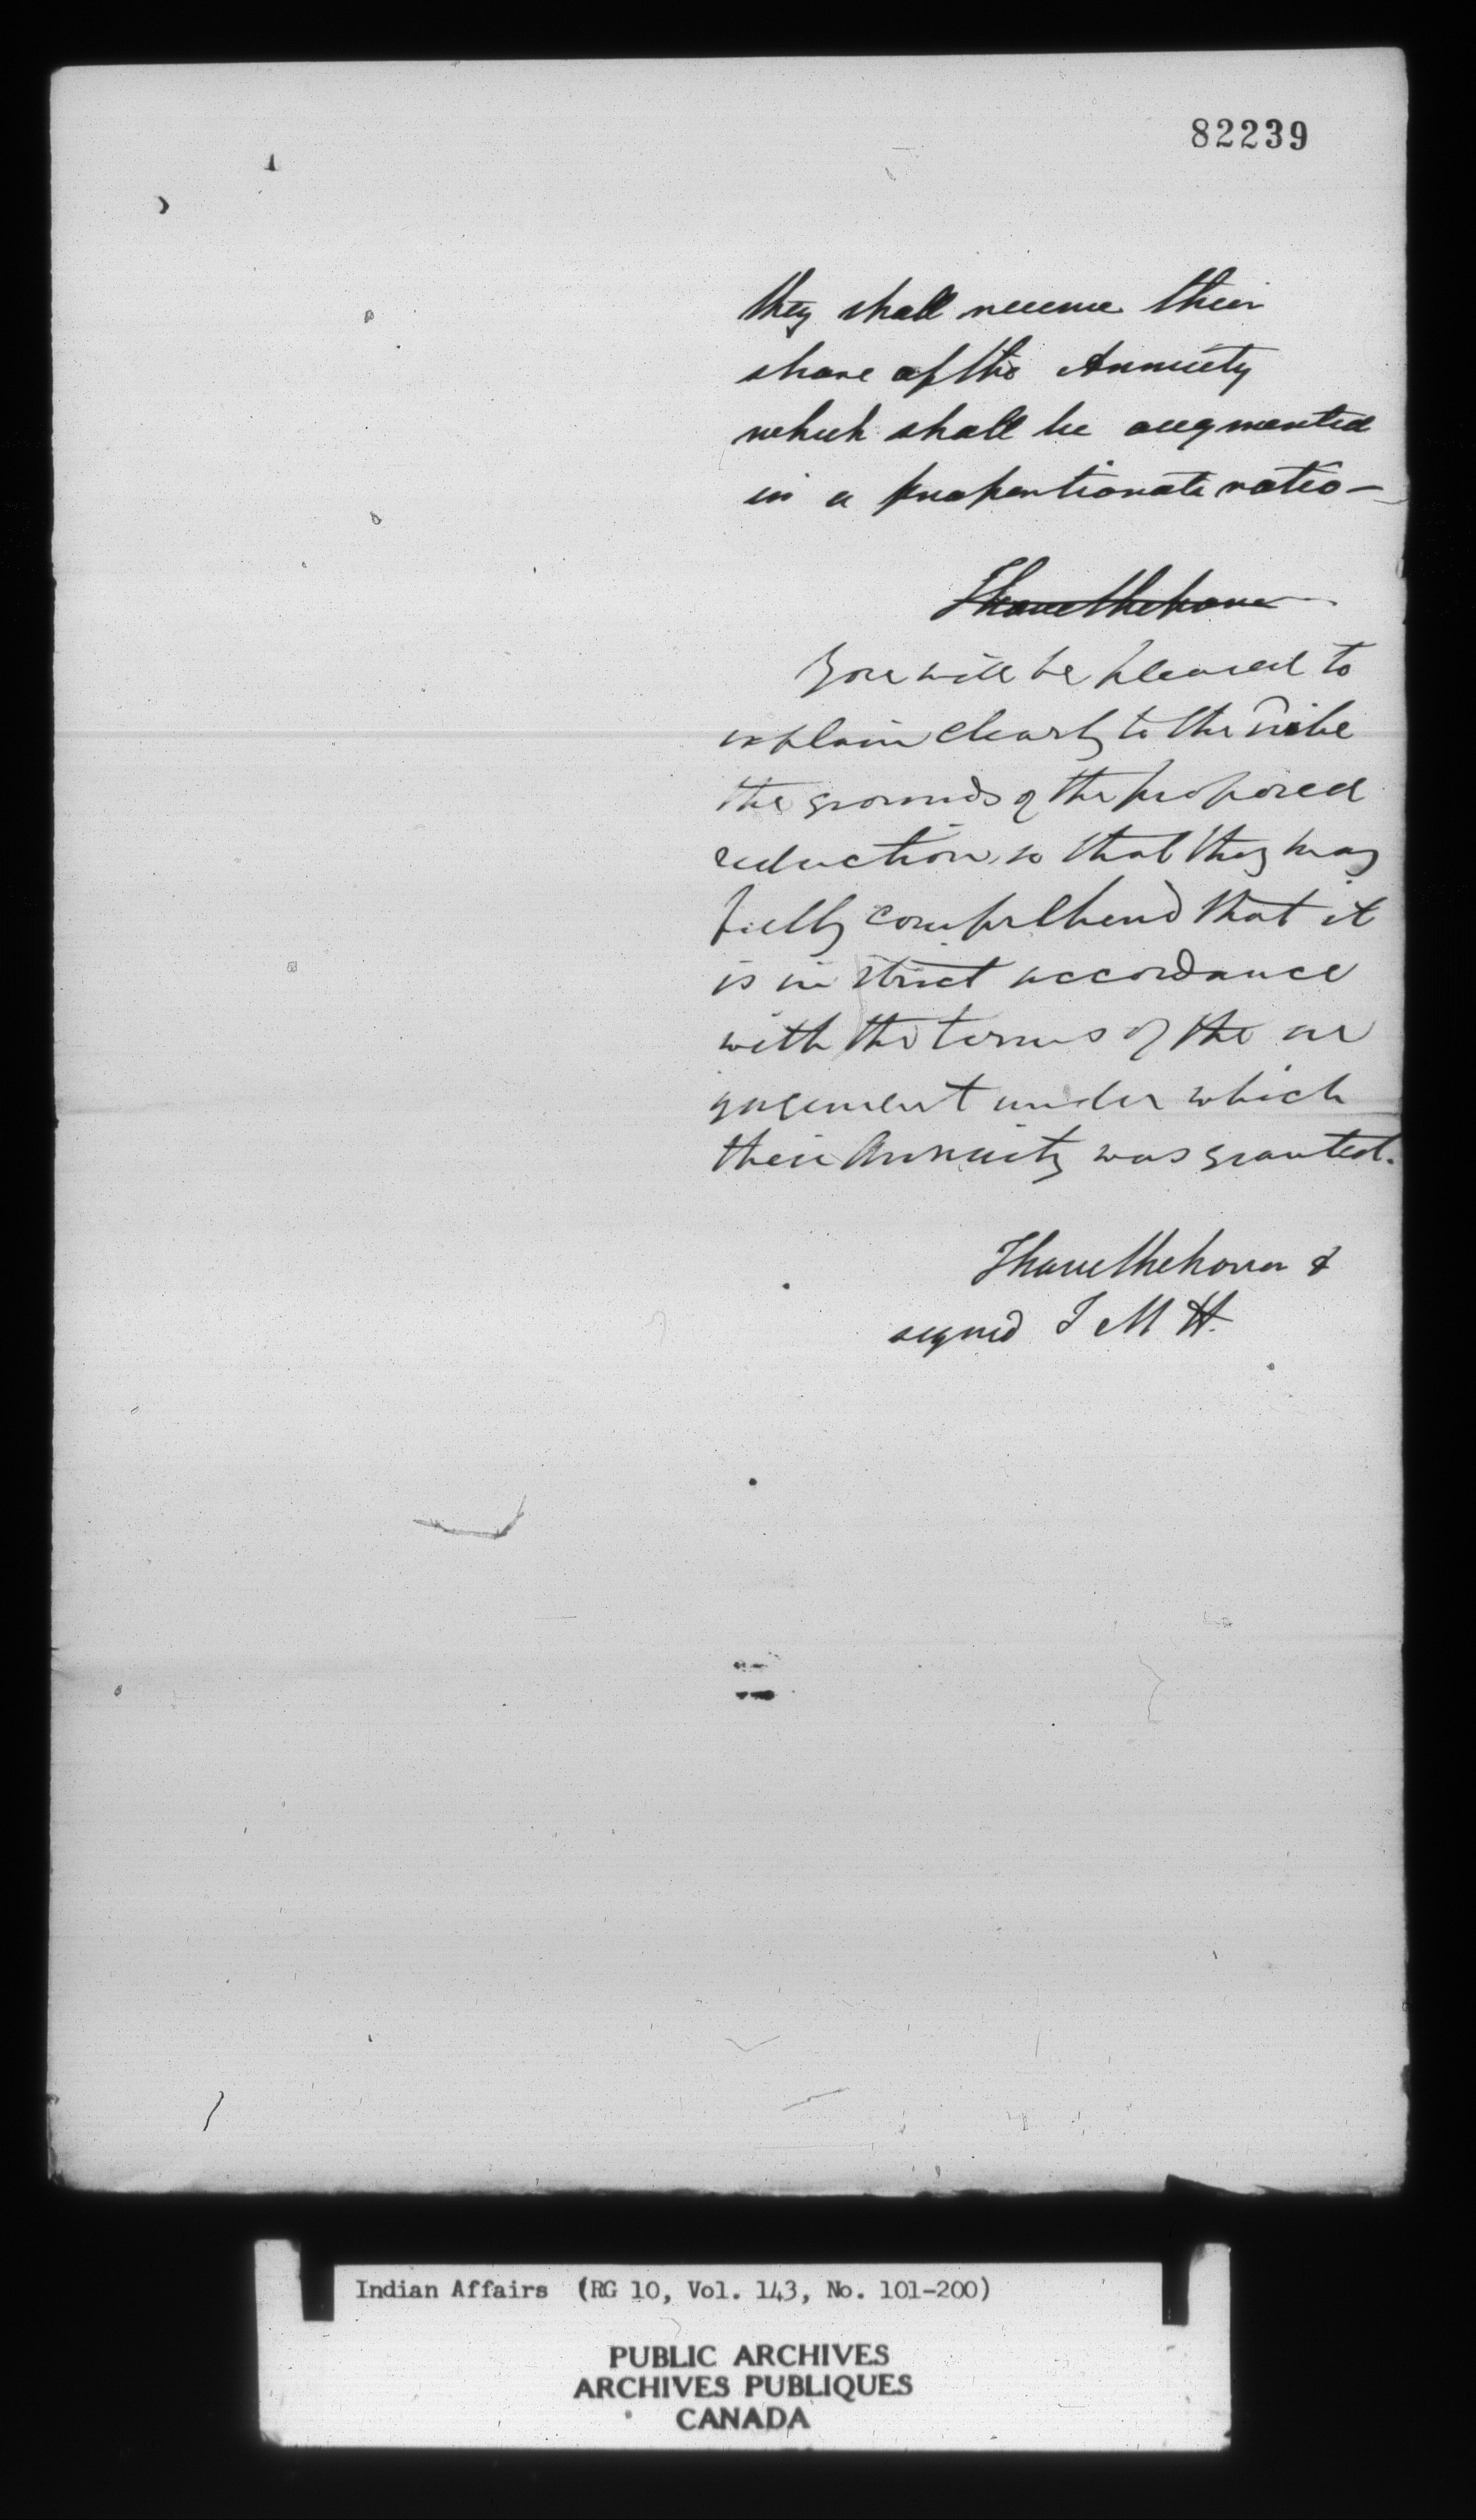 82239
they shall receive their
share of the Annuity
which shall be augmented
in a proportionate ratio —
I have the honor
You will be pleased to
explain clearly to the tribe
the grounds of the proposed
reduction, so that they may
fully comprehend that it
is in strict accordance
with the terms of the ar
gagement under which
their Annuity was granted.
I have the honor &
signed T M H.
Indian Affairs (RG 10, Vol. 143, No. 101-200)
PUBLIC ARCHIVES
ARCHIVES PUBLIQUES
CANADA